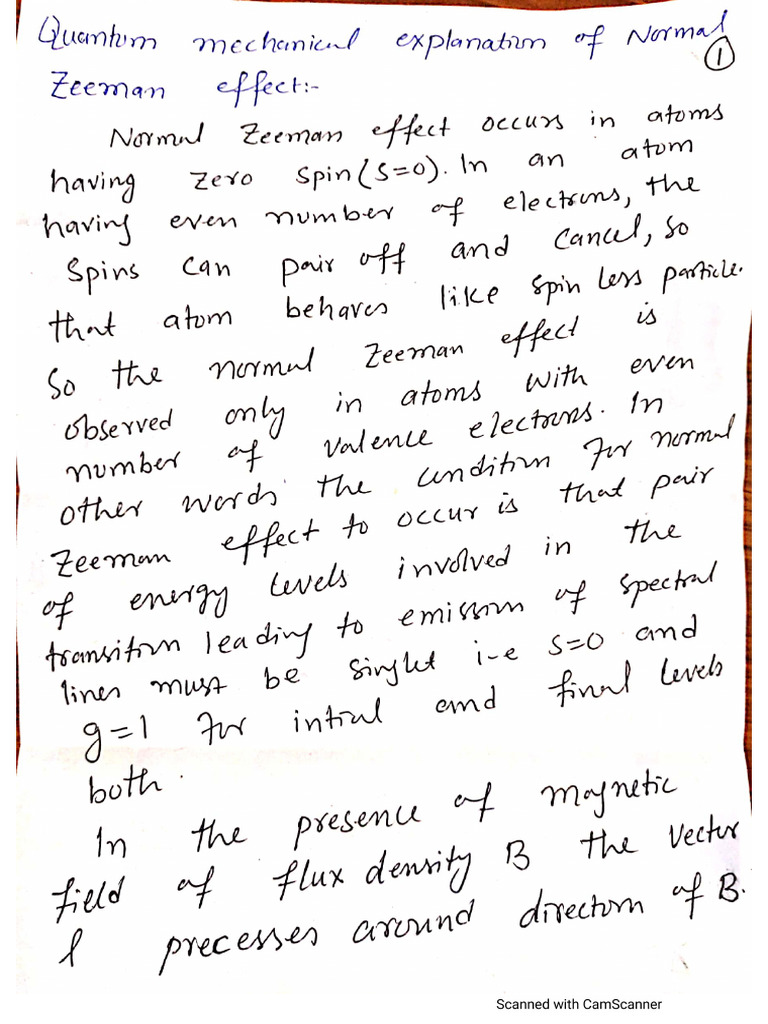 Quantum mechanical explanation of Normal
①
Zeeman effect:-
Normal Zeeman effect occurs in atoms
having zero spin (S=0). In an atom
having even number of electrons, the
spins can pair off and cancel, so
that atom behaves like spin less particle.
So the normal Zeeman effect is
observed only in atoms with even
number of valence electrons. In
other words the condition for normal
Zeeman effect to occur is that pair
of energy levels involved in the
transition leading to emission of spectral
lines must be singlet i-e S=0 and
g=1 for intial and final levels
both.
In the presence of magnetic
field of flux density B the vector
l precesses around direction of B.
Scanned with CamScanner